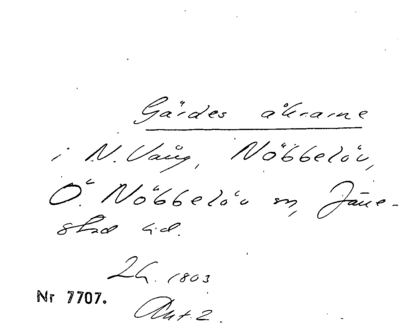 Gärdes åkrarne
i N. Vång, Nöbbelöv,
Ö. Nöbbelöv sn, Järe-
stad hd.
2h. 1803
Nr 7707.
Ant 2.